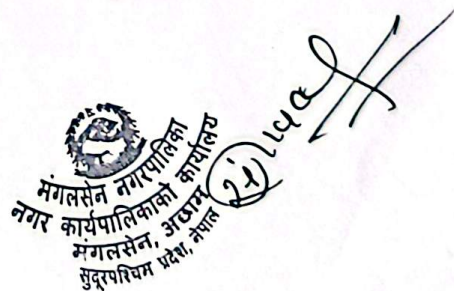 मंगलसेन नगरपालिका
नगर कार्यपालिकाको कार्यालय
मंगलसेन, अछाम
सुदूरपश्चिम प्रदेश, नेपाल